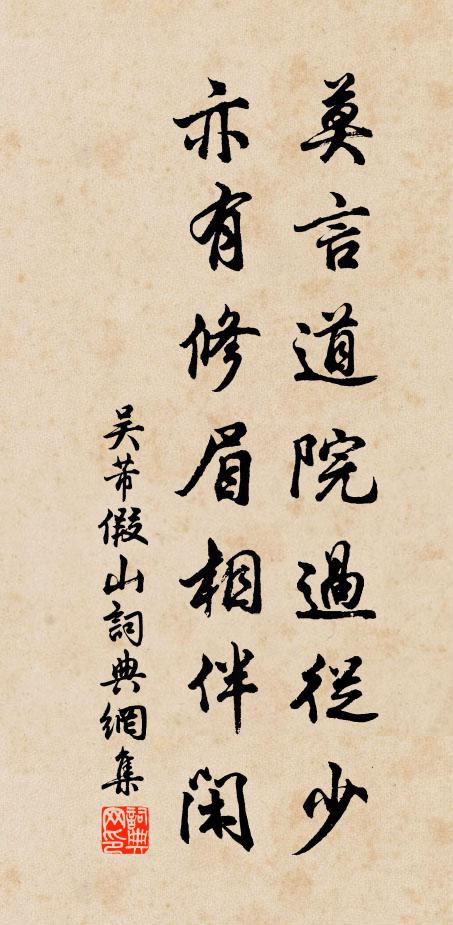 莫言道院過從少
亦有修眉相伴閑
吳芾假山詞典網集
詞典網印